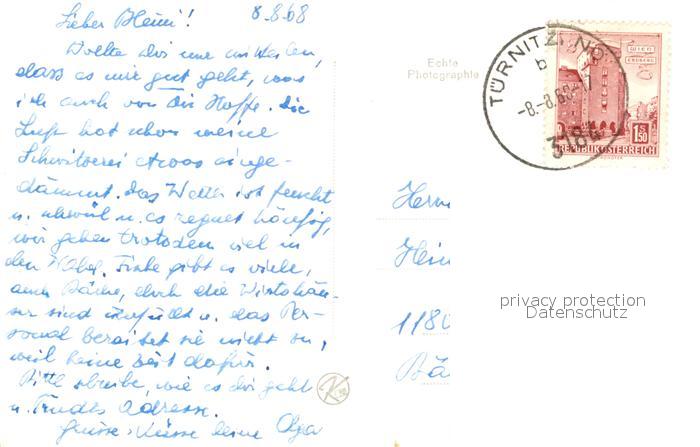 8.8.68
Lieber Heini!
Wollte dir nur mitteilen,
dass es mir gut geht, was
ich auch von Dir Hoffe. Die
Luft hat schon meine
Schwitzerei etwas einge-
dämmt. Das Wetter ist feucht
u. schwül u. es regnet häufig,
wir gehen trotzdem viel in
den Wald. Pilze gibt es viele,
auch Bäche, doch die Wirtshäu-
ser sind überfüllt u. das Per-
sonal bereitet sie nicht zu,
weil keine Zeit dafür.
Bitte schreibe, wie es dir geht
u. Trudes Adresse.
Grüsse + Küsse deine Olga
Echte
Photographie
TÜRNITZ, NÖ
b
-8.-8.68-17
3184
WIEN
ERDBERG
1.50
REPUBLIK ÖSTERREICH
Herrn
Hein
1180
privacy protection
Datenschutz